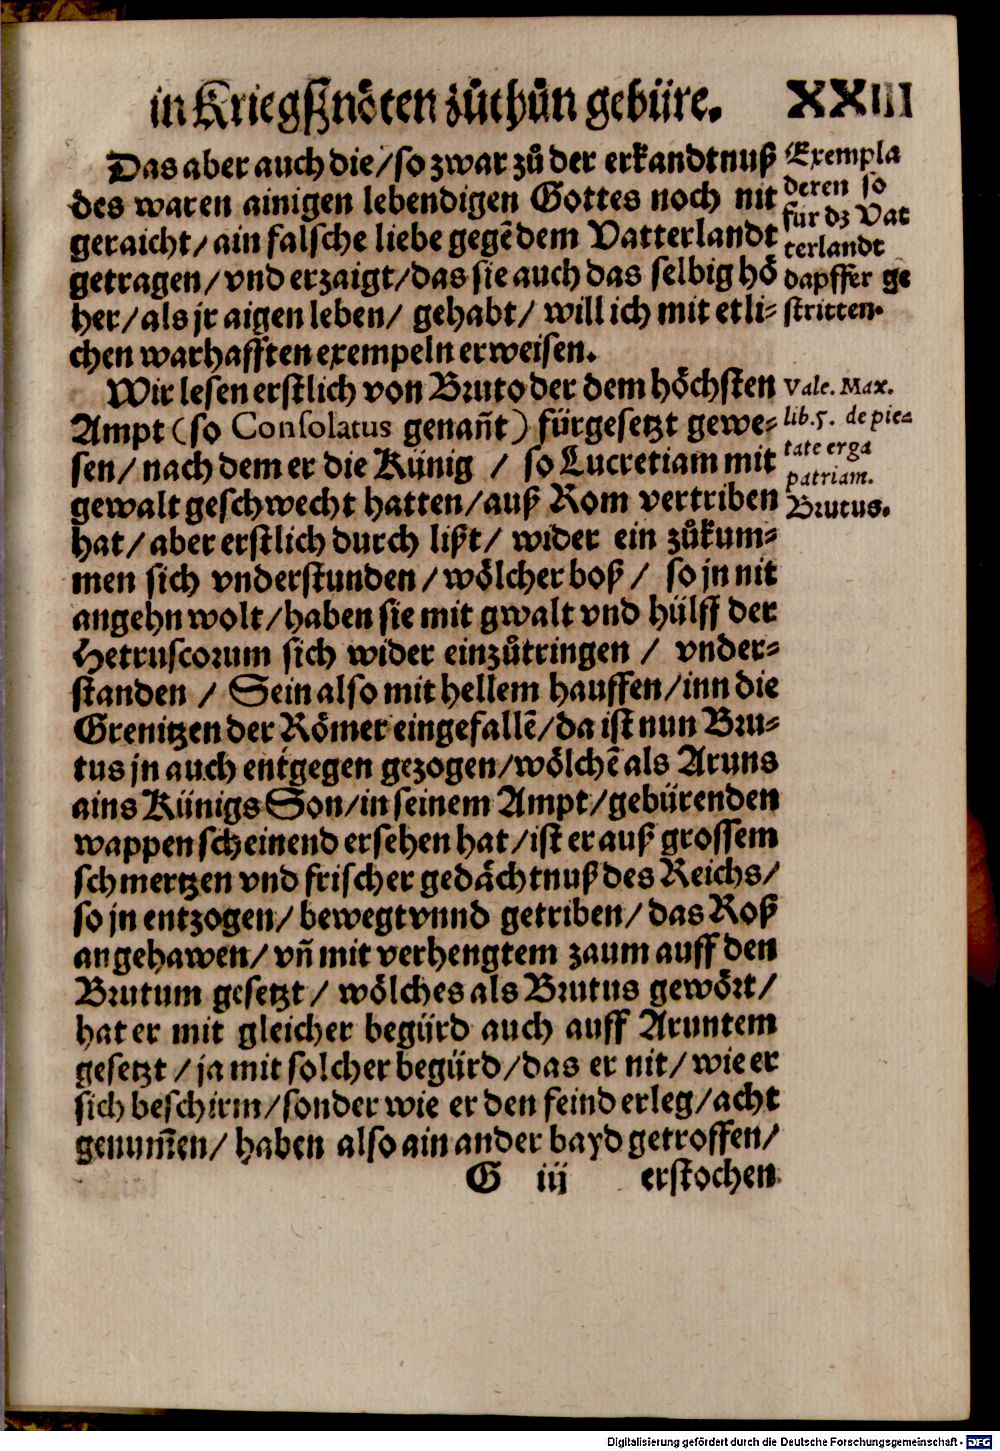 in Kriegßnöten zůthůn gebüre.
XXIII
Das aber auch die/ so zwar zů der erkandtnuß
des waren ainigen lebendigen Gottes noch nit
geraicht/ ain falsche liebe gegẽ dem Vatterlandt
getragen/ vnd erzaigt/ das sie auch das selbig hö
her/ als jr aigen leben/ gehabt/ will ich mit etli⸗
chen warhafften exempeln erweisen.
Exempla
deren so
für dz Vat
terlandt
dapffer ge
stritten.
Wir lesen erstlich von Bruto der dem höchsten
Ampt (so Consolatus genañt) fürgesetzt gewe⸗
sen/ nach dem er die Künig / so Lucretiam mit
gewalt geschwecht hatten/ auß Rom vertriben
hat/ aber erstlich durch lißt/ wider ein zůkum⸗
men sich vnderstunden/ wölcher boß/ so jn nit
angehn wolt/ haben sie mit gwalt vnd hülff der
Hetruscorum sich wider einzůtringen / vnder⸗
standen / Sein also mit hellem hauffen/ inn die
Grenitzen der Römer eingefallẽ/ da ist nun Bru⸗
tus jn auch entgegen gezogen/ wölchẽ als Aruns
ains Künigs Son/ in seinem Ampt/ gebürenden
wappen scheinend ersehen hat/ ist er auß grossem
schmertzen vnd frischer gedächtnuß des Reichs/
so jn entzogen/ bewegt vnnd getriben/ das Roß
angehawen/ vñ mit verhengtem zaum auff den
Brutum gesetzt/ wölches als Brutus gewört/
hat er mit gleicher begürd auch auff Aruntem
gesetzt / ja mit solcher begürd/ das er nit/ wie er
sich beschirm/ sonder wie er den feind erleg/ acht
genum̃en/ haben also ain ander bayd getroffen/
Vale. Max.
lib.5. de pie⸗
tate erga
patriam.
Brutus.
G iij erstochen
Digitalisierung gefördert durch die Deutsche Forschungsgemeinschaft - DFG